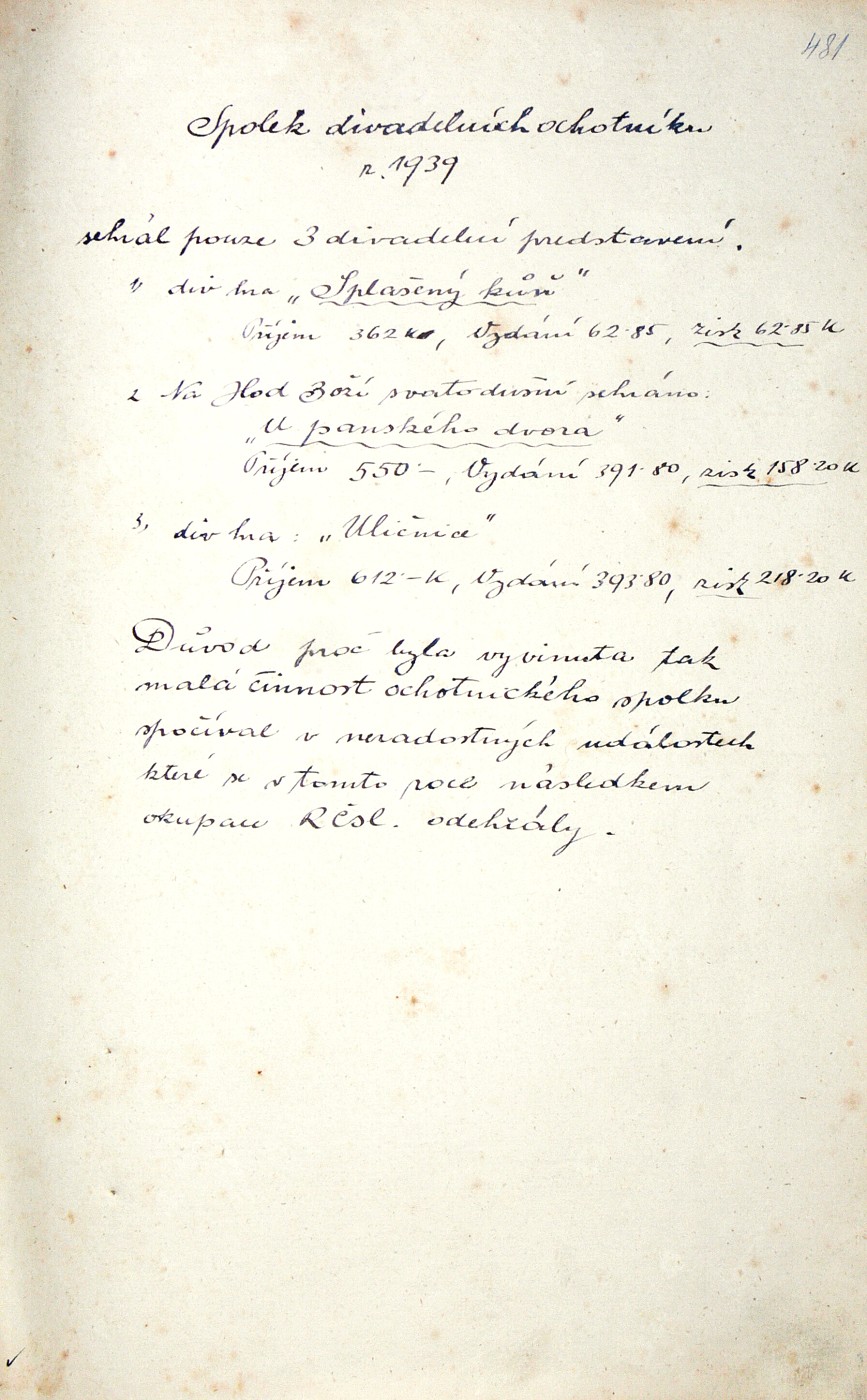 481
Spolek divadelních ochotníku
r. 1939
sehrál pouze 3 divadelní predstavení.
1) div hra „Splašený kůň"
Příjem 362 K, Vydání 62·85, zisk 62·85 K
2 Na Hod Boží svatodušní sehráno:
„U panského dvora"
Příjem 550·–, Vydání 391·80, zisk 158·20 K
3, div hra: „Uličnice"
Příjem 612·– K, Vydání 393·80, zisk 218·20 K
Důvod proč byla vyvinuta tak
malá činnost ochotnického spolku
spočíval v neradostných událostech
které se v tomto roce následkem
okupace RČSl. odehrály.